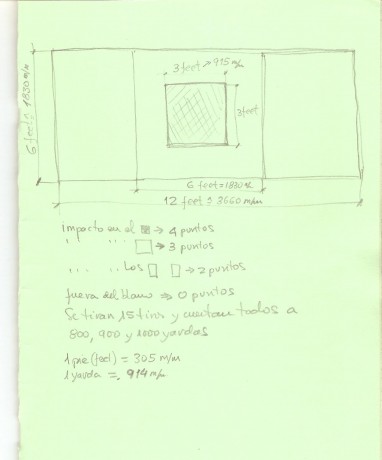 3 feet ↗ 915 m/m
6 feet = 1830 m/m
3 feet
6 feet = 1830 m/m
12 feet = 3660 m/m
Impacto en el ▩ → 4 puntos
" " " □ → 3 puntos
" " " Los ▯ ▯ → 2 puntos
fuera del blanco → 0 puntos
Se tiran 15 tiros y cuentan todos a
800, 900 y 1000 yardas
1 pie (feet) = 305 m/m
1 yarda = 914 m/m